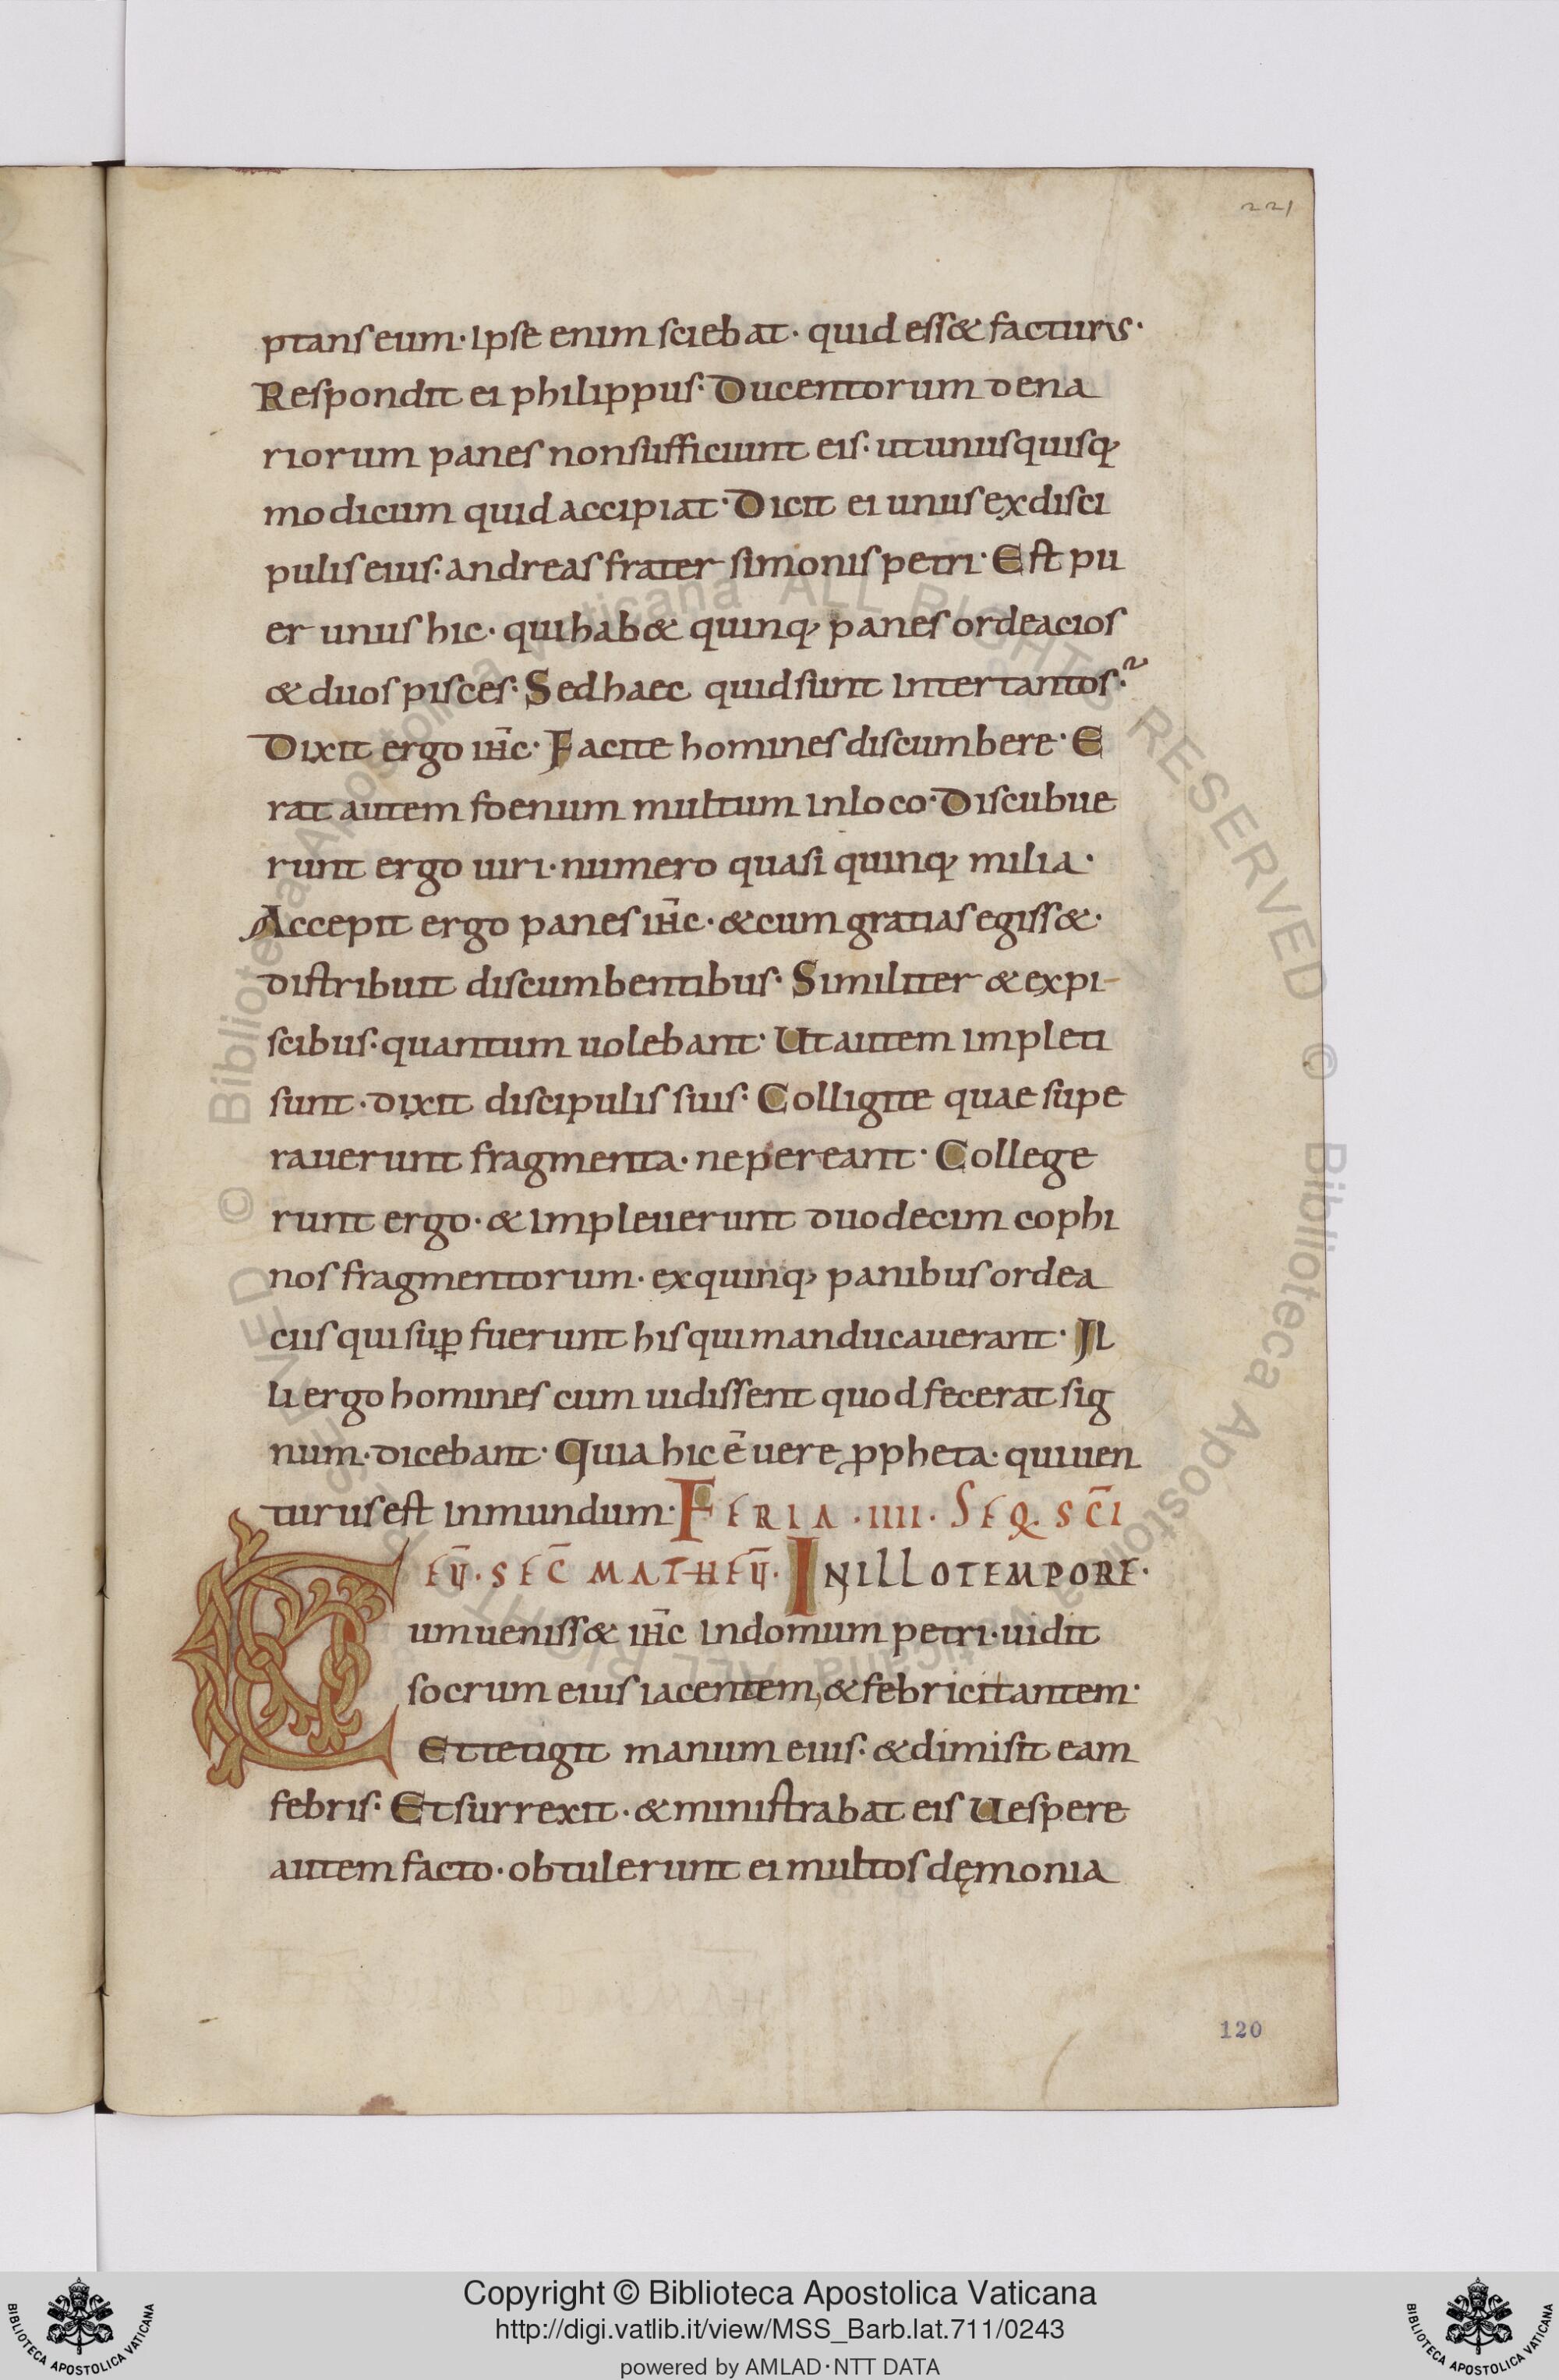 221
ptans eum· Ipse enim sciebat· quid ess& facturus·
Respondit ei philippus· Ducentorum dena
riorum panes non sufficiunt eis· ut unusquisq;
modicum quid accipiat· Dicit ei unus ex disci
pulis eius· andreas frater simonis petri· Est pu
er unus hic· qui hab& quinq; panes ordeacios
& duos pisces· Sed haec quid sunt inter tantos·?
Dixit ergo ih̅c· Facite homines discumbere· E
rat autem foenum multum in loco· Discubue
runt ergo uiri· numero quasi quinq; milia·
Accepit ergo panes ih̅c· & cum gratias egiss&·
distribuit discumbentibus· Similiter & ex pi-
scibus· quantum uolebant· Ut autem impleti
sunt· dixit discipulis suis· Colligite quae supe
rauerunt fragmenta· ne pereant· College
runt ergo· & impleuerunt duodecim cophi
nos fragmentorum· ex quinq; panibus ordea
ciis qui suꝑ fuerunt his qui manducauerant· Il
li ergo homines cum uidissent quod fecerat sig
num· dicebant· Quia hic ē uere ꝓpheta· qui uen
turus est in mundum· FERIA ·IIII· SEQ. SC̅I
EU̅· SEC̅ MATHEU̅· IN ILLO TEMPORE·
Cum ueniss& ih̅c in domum petri· uidit
socrum eius iacentem, & febricitantem·
Et tetigit manum eius· & dimisit eam
febris· Et surrexit· & ministrabat eis Uespere
autem facto· obtulerunt ei multos dęmonia
120
© Biblioteca Apostolica Vaticana ALL RIGHTS RESERVED © Biblioteca Apostolica Vaticana ALL RIGHTS RESERVED
Copyright © Biblioteca Apostolica Vaticana
http://digi.vatlib.it/view/MSS_Barb.lat.711/0243
powered by AMLAD·NTT DATA
BIBLIOTECA APOSTOLICA VATICANA
BIBLIOTECA APOSTOLICA VATICANA